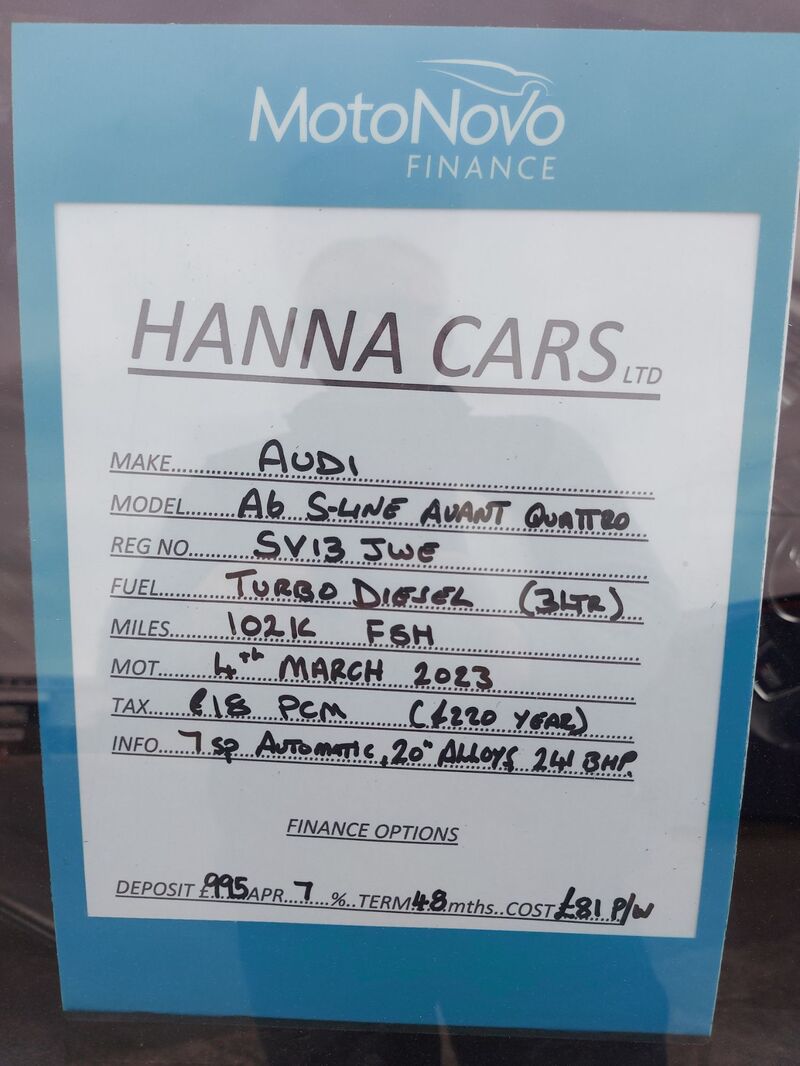 MotoNovo
FINANCE
HANNA CARS LTD
MAKE........AUDI
MODEL....A6 S-LINE AVANT QUATTRO
REG NO.......SV13 JWE
FUEL.......TURBO DIESEL (3LTR)
MILES.......102K FSH
MOT......4th MARCH 2023
TAX....£18 PCM (£220 YEAR)
INFO..7 SP AUTOMATIC, 20" ALLOYS 241 BHP.
FINANCE OPTIONS
DEPOSIT £995 APR..7...%..TERM 48 mths..COST £81 P/W